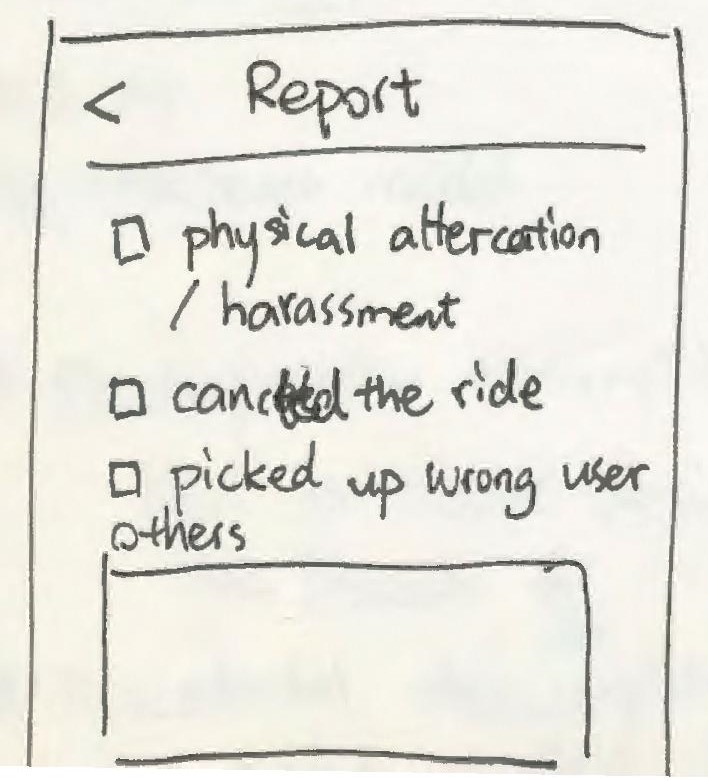 < Report
physical altercation
/ harassment
the ride
picked up wrong user
others